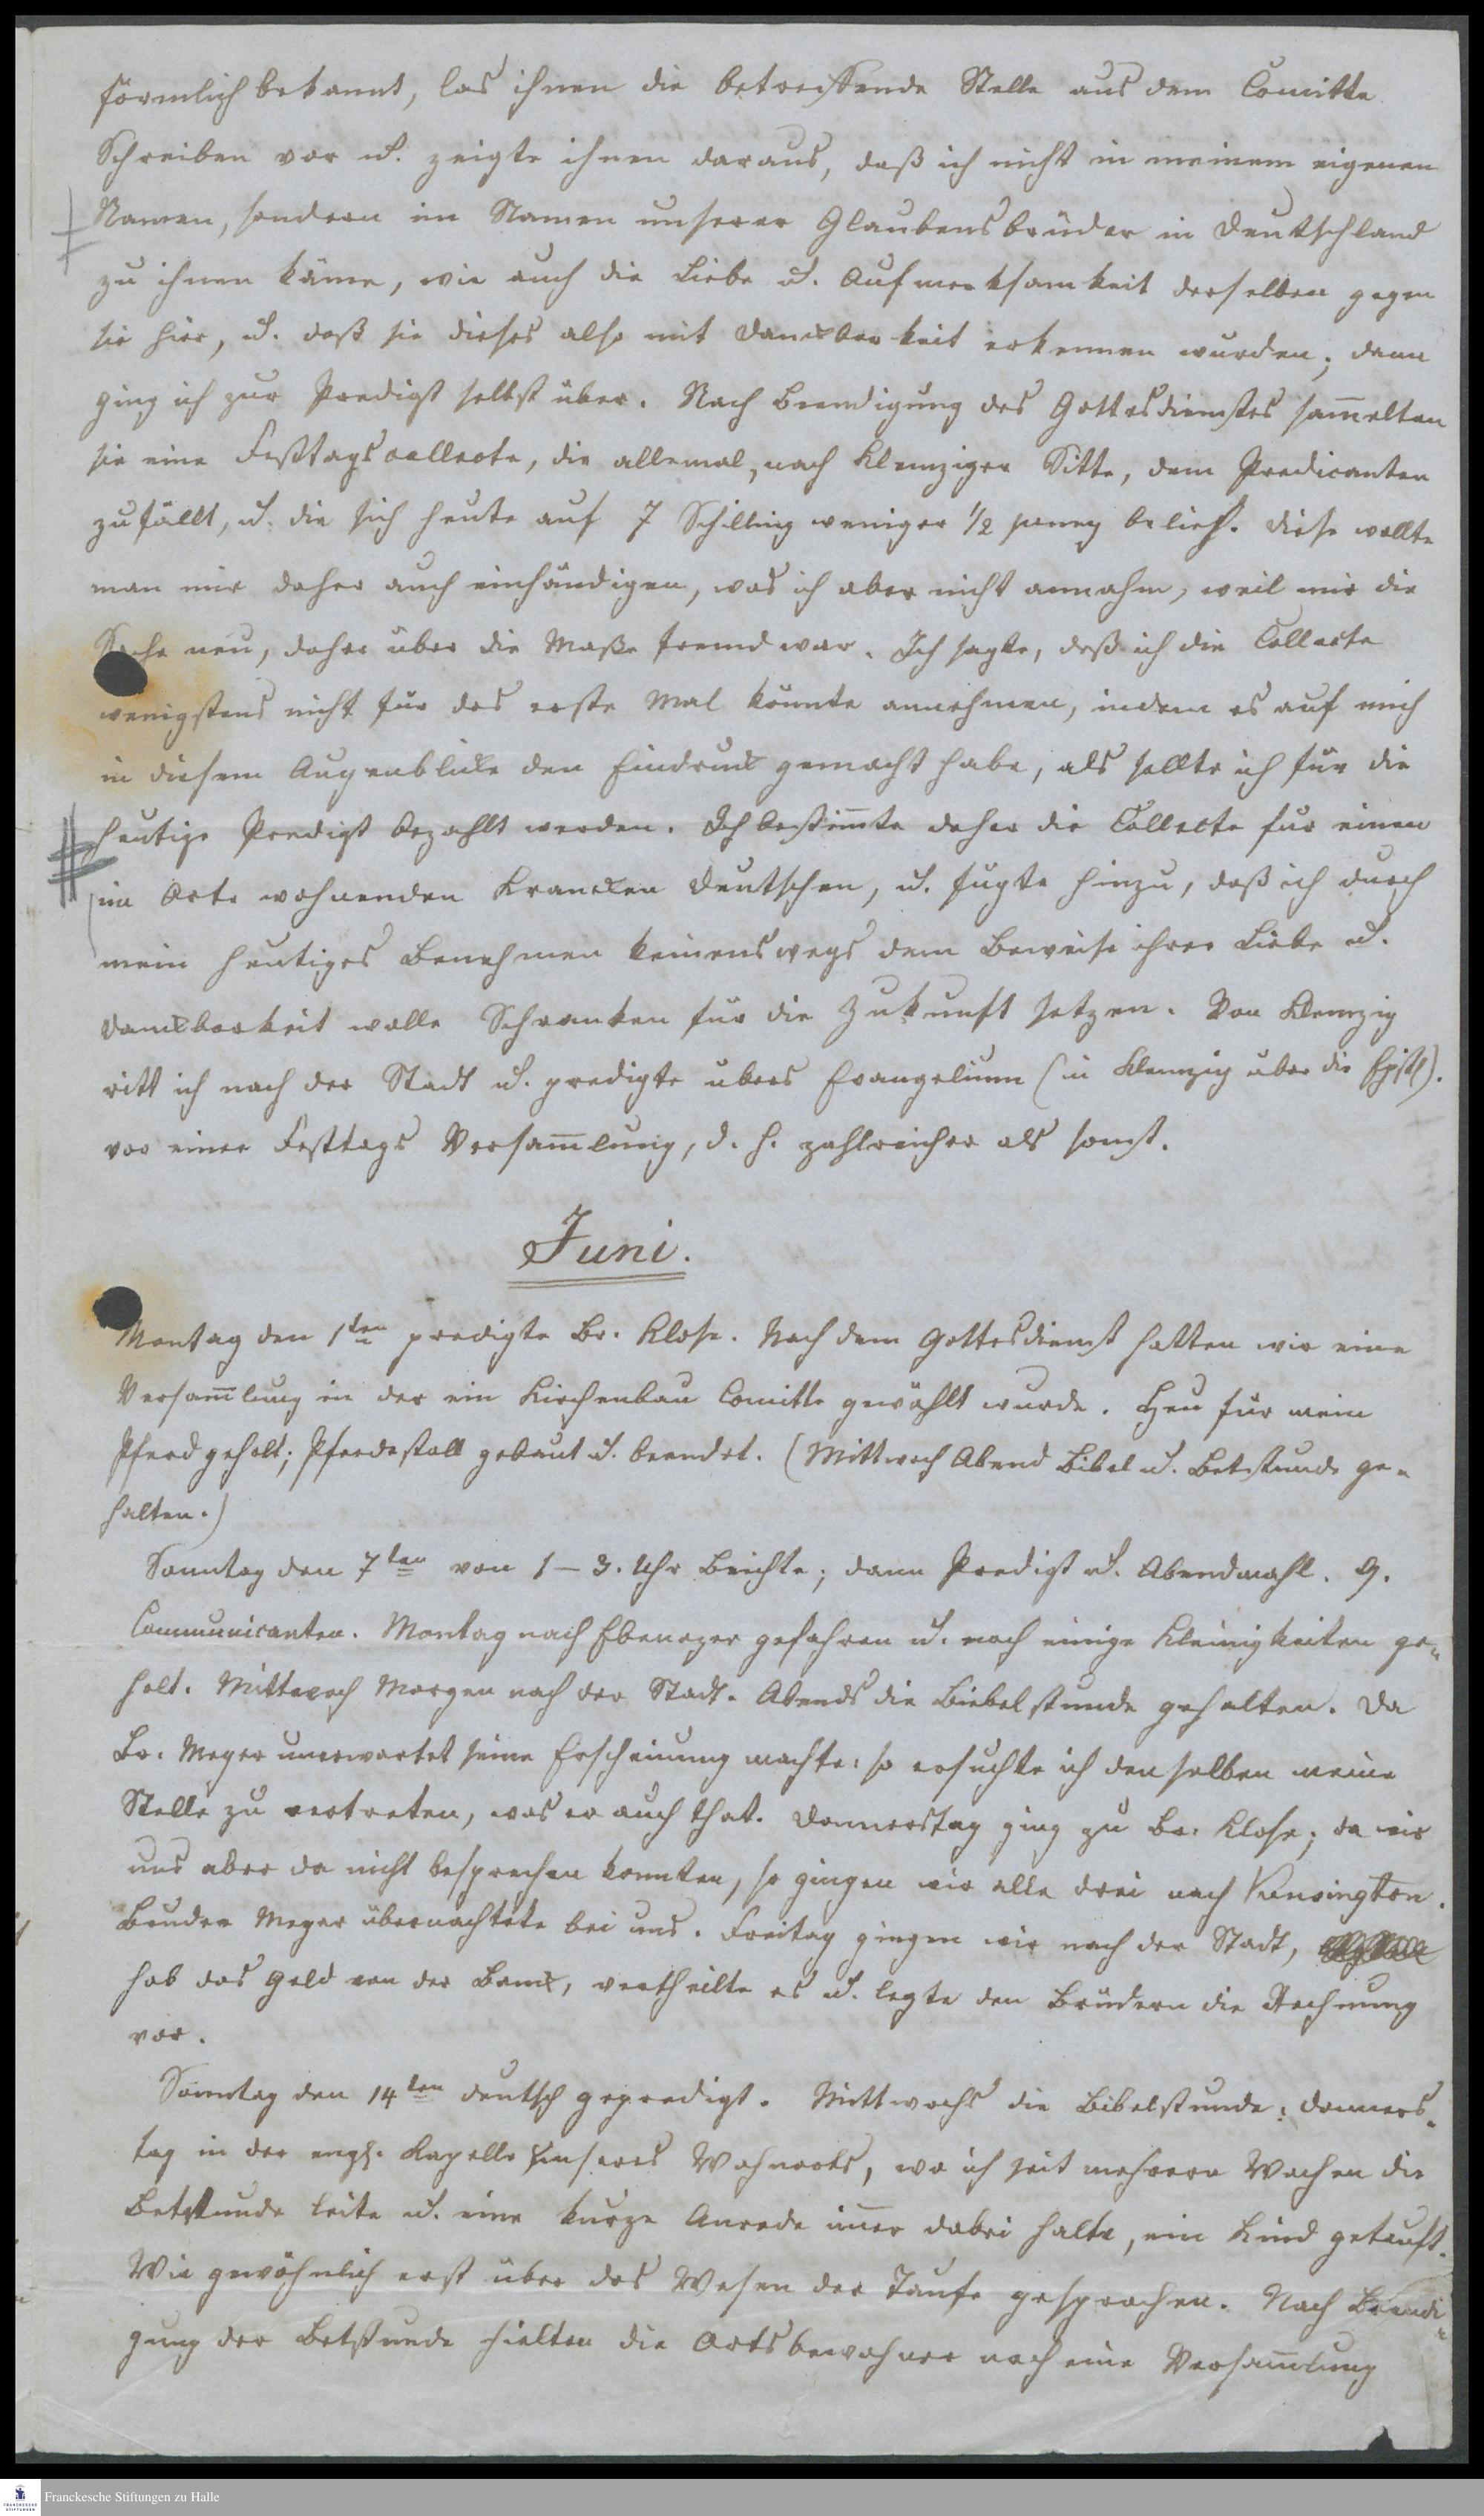 förmlich bekannt, las ihnen die betreffende Stelle aus dem Comitte
Schreiben vor u. zeigte ihnen daraus, daß ich nicht in meinem eigenen
Namen, sondern im Namen unserer Glaubensbrüder in Deutschland
zu ihnen käme, wie auch die Liebe u. Aufmerksamkeit derselben gegen
sie hier, u. daß sie dieses also mit Danckbarkeit erkennen wurden; dann
ging ich zur Predigt selbst über. Nach Beendigung des Gottesdienstes sam̅elten
sie eine Festtagscollecte, die allemal, nach Klemziger Sitte, dem Predicanten
zufällt, u. die sich heute auf 7 Schilling weniger 1/2 penny belief. Diese wollte
man mir daher auch einhändigen, was ich aber nicht annahm, weil mir die
Sache neu, daher über die Maße fremd war. Ich sagte, daß ich die Collecte
wenigstens nicht für das erste Mal könnte annehmen, indem es auf mich
in diesem Augenblicke den Eindruck gemacht habe, als sollte ich für die
heutige Predigt bezahlt werden. Ich bestim̅te daher die Collecte fur einen
im Orte wohnenden Krancken Deutschen, u. fugte hinzu, daß ich durch
mein heutiges Benehmen keineswegs dem Beweise ihrer Liebe u.
Danckbarkeit wolle Schranken für die Zukunft setzen. Von Klemzig
ritt ich nach der Stadt u. predigte ubers Evangelium (in Klemzig uber die Epistl).
vor einer Festtags Versam̅lung, d. h. zahlreicher als sonst.
Juni.
Montag den 1ten predigte Br. Klose. Nach dem Gottesdienst hatten wir eine
Versam̅lung in der ein Kirchenbau Comitte gewählt wurde. Heu für mein
Pferd geholt; Pferdestall gebaut u. beendet. (Mittwoch Abend Bibel u. Betstunde ge-
halten.)
Sonntag den 7ten von 1–3. Uhr Beichte; dann Predigt u. Abendmahl. 9.
Communicanten. Montag nach Ebenezer gefahren u. noch einige Kleinigkeiten ge-
holt. Mittwoch Morgen nach der Stadt. Abends die Biebelstunde gehalten. Da
Br. Meyer unerwartet seine Erscheinung machte: so ersuchte ich denselben meine
Stelle zu vertreten, was er auch that. Donnerstag ging zu Br. Klose; da wir
uns aber da nicht besprechen konnten, so gingen wir alle drei nach Kensington.
Bruder Meyer übernachtete bei uns. Freitag gingen wir nach der Stadt,
hob das Geld von der Banck, vertheilte es u. legte den Brüdern die Rechnung
vor.
Sonntag den 14ten deutsch gepredigt. Mittwochs die Bibelstunde; Donners-
tag in der engl. Kapelle unseres Wohnorts, wo ich seit mehrern Wochen die
Betstunde leite u. eine kurze Anrede im̅er dabei halte, ein Kind getauft.
Wie gewöhnlich erst über das Wesen der Taufe gesprochen. Nach Beendi-
gung der Betstunde hielten die Ortsbewohner noch eine Versam̅lung
Franckesche Stiftungen zu Halle